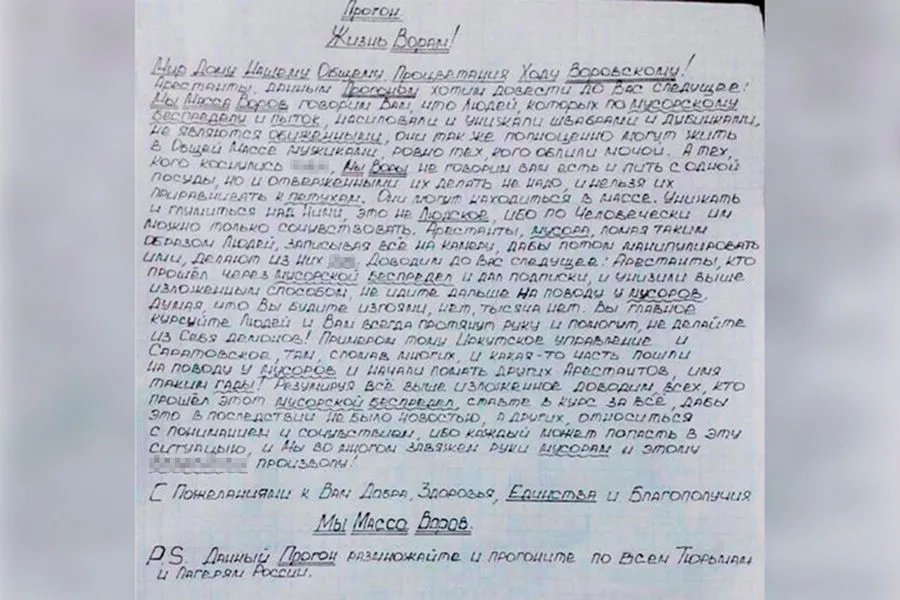 Прогон.
Жизнь Ворам!
Мир Дому Нашему Общему, Процветания Ходу Воровскому!
Арестанты, данным Прогоном хотим довести до Вас следущее:
Мы Масса Воров говорим Вам, что Людей, которых по мусорскому
беспределу и пыток, насиловали и унижали швабрами и дубинками,
не являются обиженными, они так же полноценно могут жить
в Общей Массе мужиками, ровно тех, кого облили мочой. А тех,
кого коснулись, Мы Воры не говорим вам есть и пить с одной
посуды, но и отверженными их делать не надо, и нельзя их
приравнивать к петухам. Они могут находиться в массе. Унижать
и глумиться над Ними, это не Людское, ибо по Человечески им
можно только сочувствовать. Арестанты, мусора, ломая таким
образом Людей, записывая всё на камеру, дабы потом манипулировать
ими, делают из них. Доводим до Вас следущее: Арестанты, кто
прошёл через мусорской беспредел и дал подписки, и унизили выше
изложенным способом, не идите дальше на поводу у мусоров,
думая, что Вы будите изгоями, нет, тысяча нет. Вы главное
курсуйте Людей и Вам всегда протянут руку и помогут, не делайте
из Себя демонов! Примером тому Иркутское управление и
Саратовское, там, сломав многих, и какая-то часть пошли
на поводу у мусоров и начали ломать других Арестантов, имя
таким гады! Резумируя всё выше изложенное доводим всех, кто
прошёл этот мусорской беспредел, ставте в курс за всё, дабы
это в последствии не было новостью, а других, относиться
с пониманием и сочувствием, ибо каждый может попасть в эту
ситуацию, и Мы во многом завяжем руки мусорам и этому
произволу!
С Пожеланиями к Вам Добра, Здоровья, Единства и Благополучия
Мы Масса Воров.
P.S. Данный Прогон размножайте и прогоните по всем Тюрьмам
и Лагерям России.